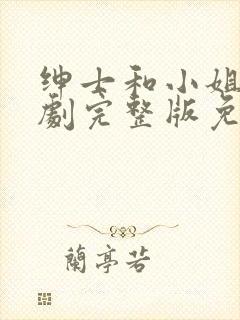 绅士和小姐
劇完整版免
蘭亭若